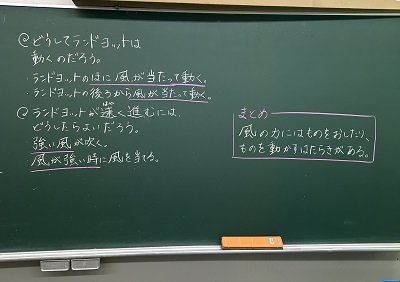 @どうしてランドヨットは
動くのだろう。
・ランドヨットのほに風が当たって動く。
・ランドヨットの後ろから風が当たって動く。
@ランドヨットが速く進むには、
どうしたらよいだろう。
強い風が吹く。
風が強い時に風を当てる。
まとめ
風の力にはものをおしたり、
ものを動かすはたらきがある。